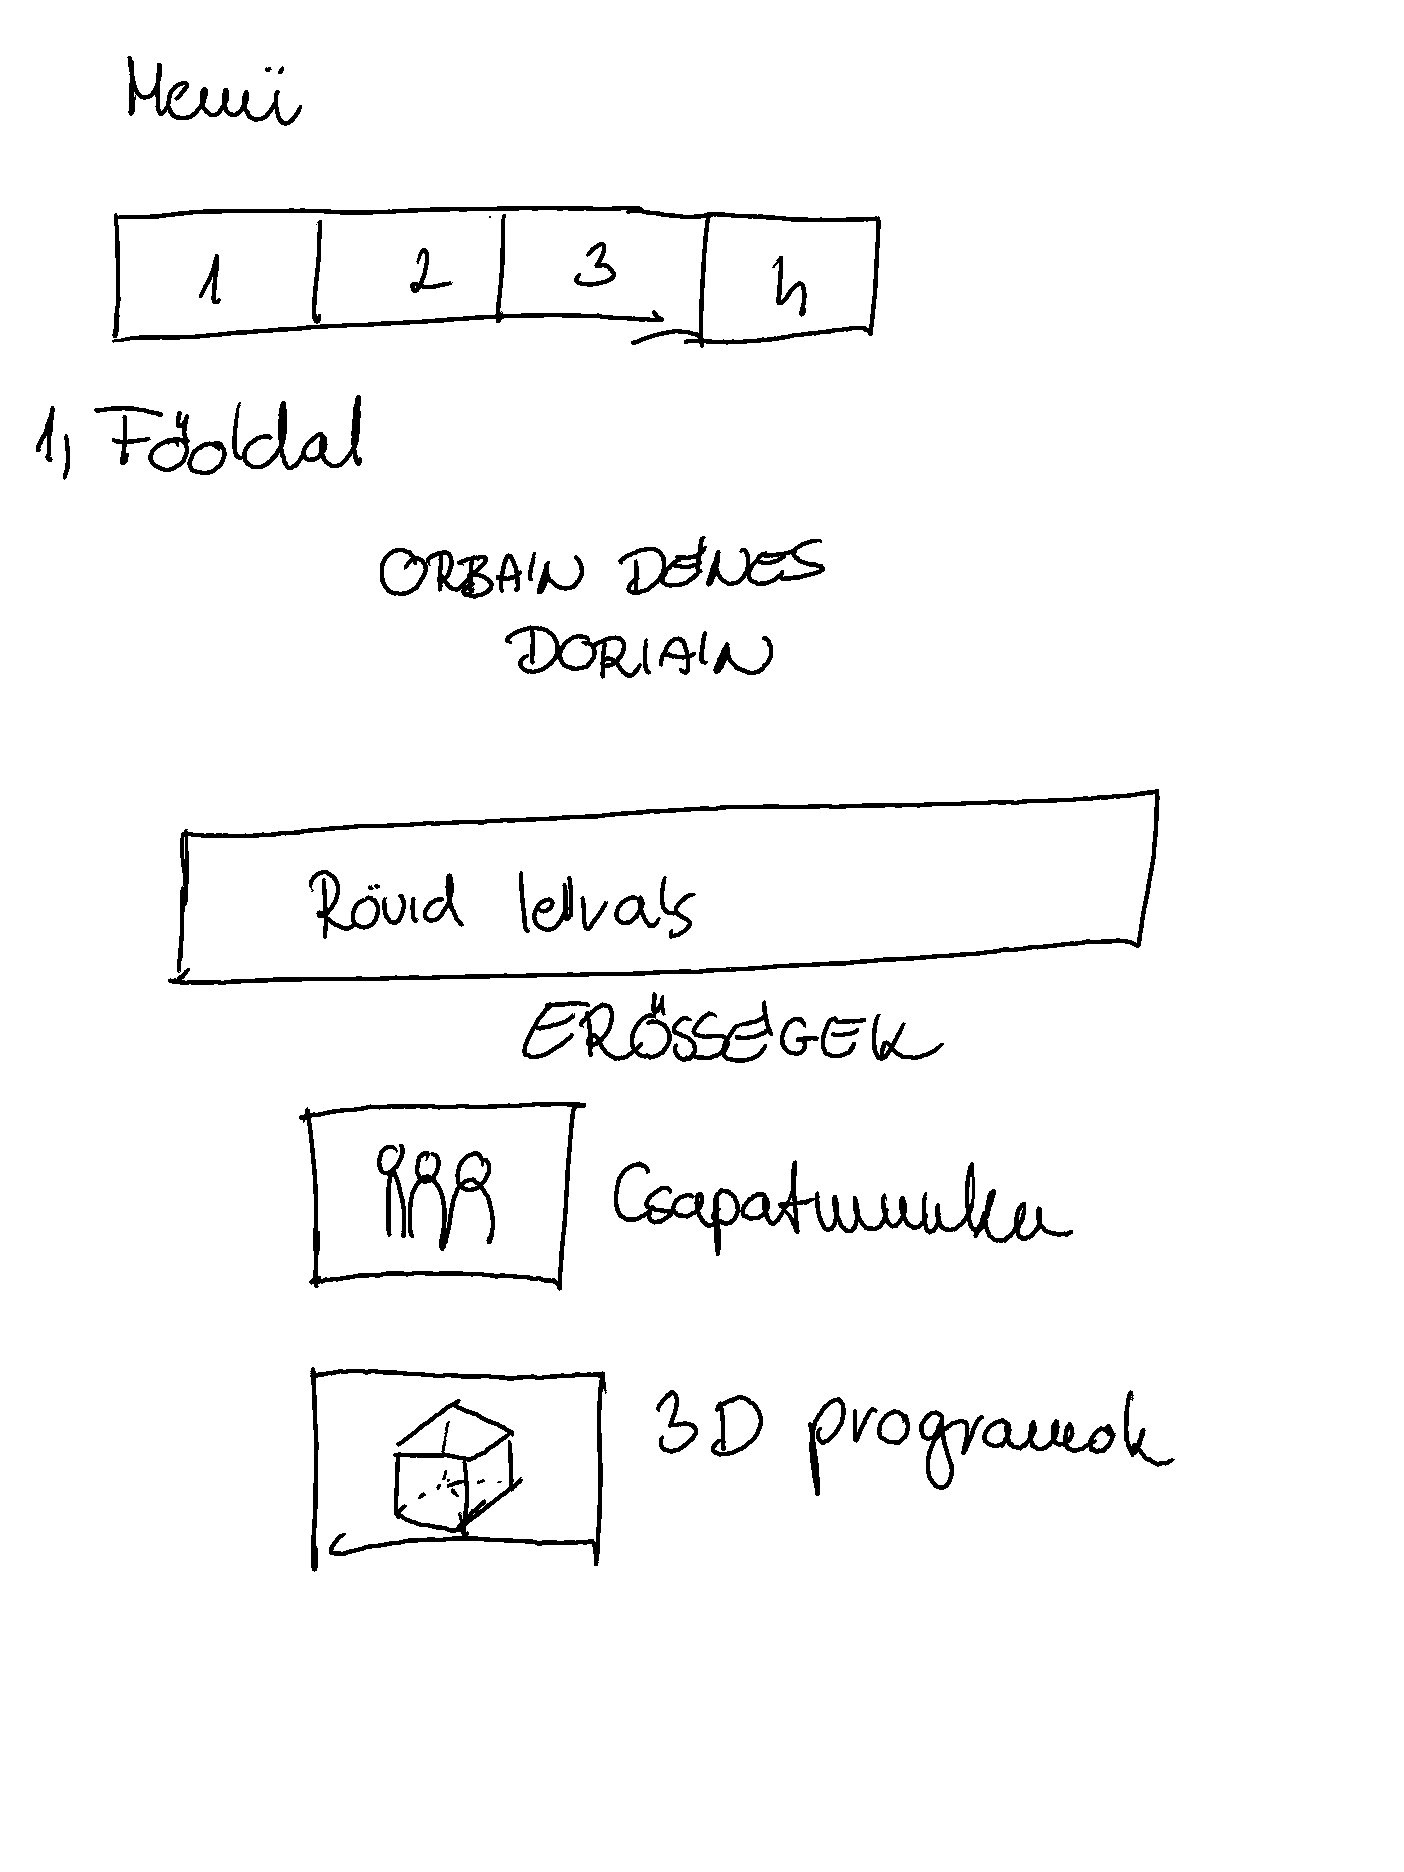 Menü
1 2 3 4
1, Főoldal
ORBÁN DÉNES
DORIÁN
Rövid leírás
ERŐSSÉGEK
Csapatmunka
3D programok